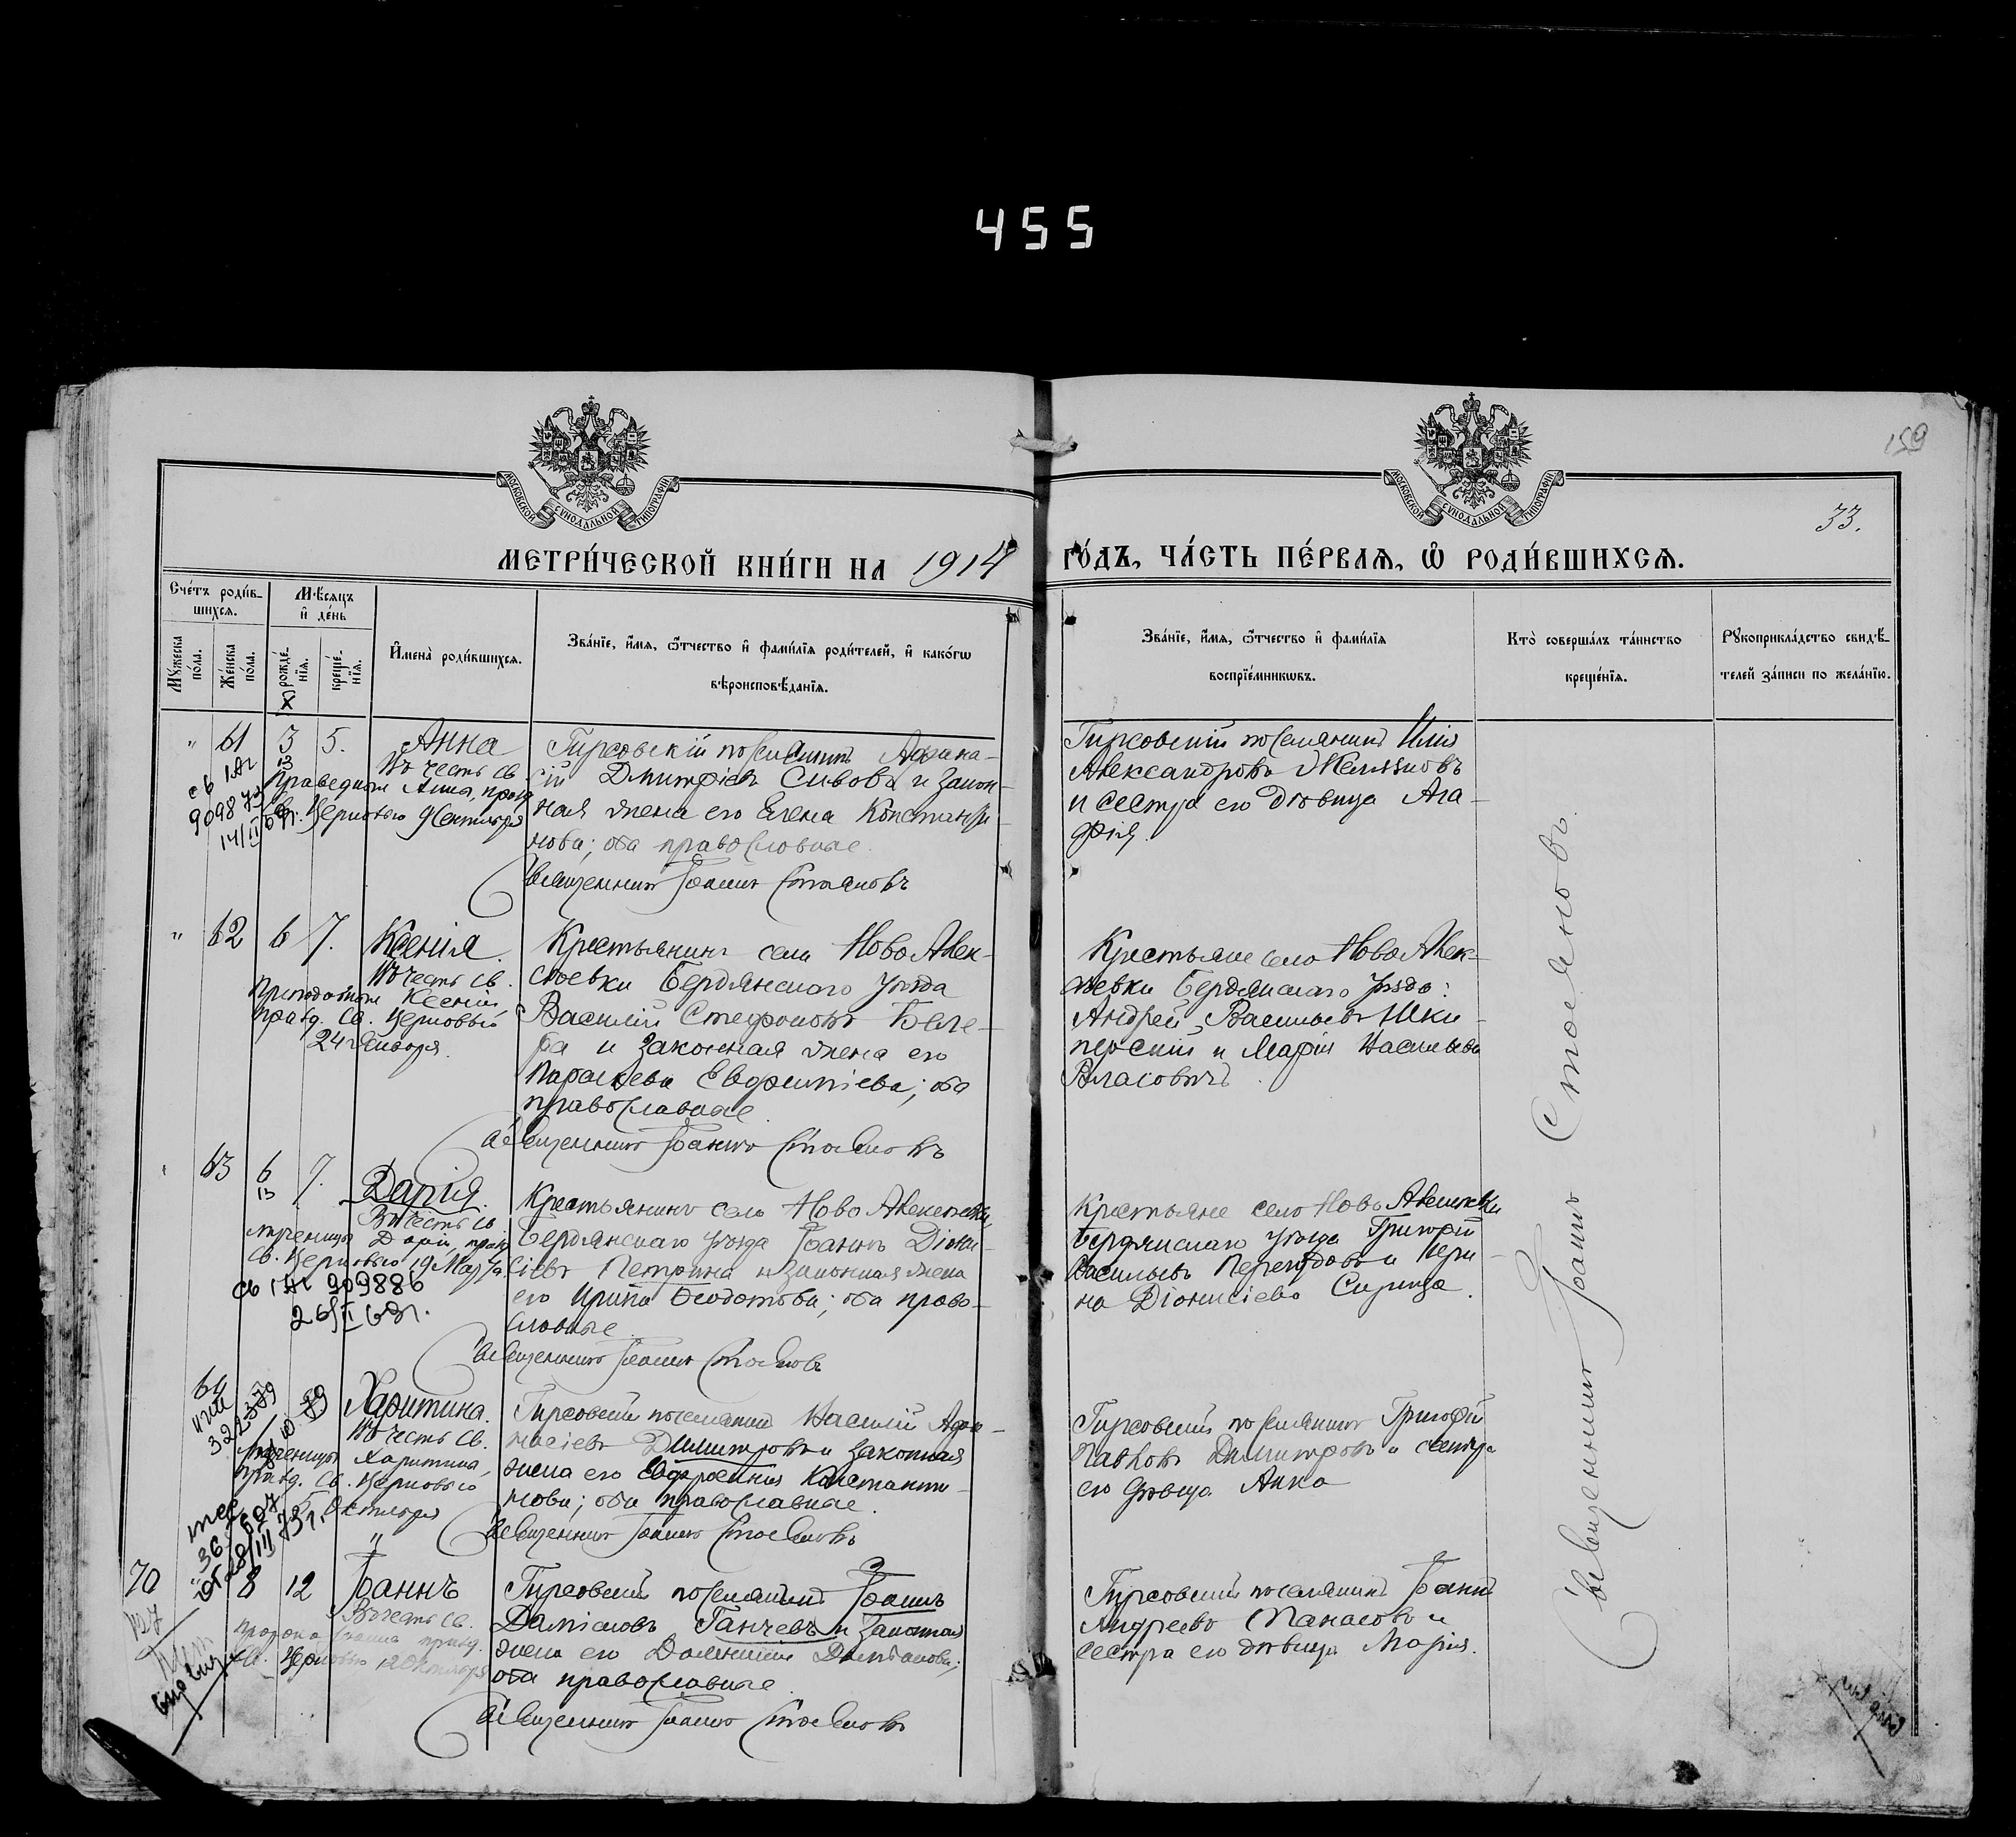 455
159
33.
МОСКОВСКОЙ СѴНОДАЛЬНОЙ ТИПОГРАФІИ
МОСКОВСКОЙ СѴНОДАЛЬНОЙ ТИПОГРАФІИ
МЕТРИ́ЧЕСКОЙ КНИ́ГИ НА 1914 ГО́ДЪ, ЧА́СТЬ ПЕ́РВАЯ, Ѡ РОДИ́ВШИХСЯ.
Сче́тъ роди́в-
шихся.
Мѣ́сяцъ
и де́нь
Му́жеска
по́ла.
Же́нска
по́ла.
рожде́-
нїя.
креще́-
нїя.
Имена̀ роди́вшихся.
Зва́нїе, и́мя, ѻ҆́тчество и фами́лїя роди́телей, и како́гѡ
вѣроисповѣ́данїя.
Зва́нїе, и́мя, ѻ҆́тчество и фами́лїя
воспрїе́мникѡвъ.
Кто̀ соверша́лъ та́инство
креще́нїя.
Рꙋкоприкла́дство свидѣ́-
телей за́писи по жела́нїю.
X
" 61 3 5. Анна
Въ честь св.
праведной Анны, празд
св. Церковью 9 Сентября
Гирсовскій поселянинъ Афана-
сій Димитріевъ Сивовъ и закон-
ная жена его Елена Константи-
нова; оба православные.
Священникъ Іоаннъ Стояновъ
Гирсовскій поселянинъ Илія
Александровъ Желязковъ
и сестра его дѣвица Ага-
фія.
" 62 6 7. Ксенія.
Въ честь св.
преподобной Ксеніи
празд. св. Церковью
24 Января.
Крестьянинъ села Ново Алек-
сѣевки Бердянскаго уѣзда
Василій Стефановъ
и законная жена его
Параскева Евфиміева; оба
православные.
Священникъ Іоаннъ Стояновъ
Крестьяне села Ново Алек-
сѣевки Бердянскаго уѣзда:
Андрей Васильевъ Шки-
перскій и Марія Васильева
63 6 7. Дарія.
Въ честь св.
мученицы Даріи, празд
св. Церковью 19 Марта
св 1 Аг 909886
Крестьянинъ села Ново Алексѣевки,
Бердянскаго уѣзда Іоаннъ Діони-
сіевъ Петрина и законная жена
его Ирина Ѳеодотова; оба право-
славные.
Священникъ Іоаннъ Стояновъ
Крестьяне села Ново Алексѣевки
Бердянскаго уѣзда Григорій
Васильевъ и Ири-
на Діонисіева Сирица.
64 Харитина.
Въ честь св.
мученицы Харитины,
празд. св. Церковью
5 Октября
Гирсовскій поселянинъ Василій Афа-
насіевъ Димитровъ и законная
жена его Евфросинія Константи-
нова; оба православные.
Священникъ Іоаннъ Стояновъ
Гирсовскій поселянинъ Григорій
Павловъ Димитровъ и сестра
его дѣвица Анна
70 " 8 12 Іоаннъ
Въ честь св.
пророка Іоанна празд.
св. Церковью 12 Октября
Гирсовскій поселянинъ Іоаннъ
Даміановъ Ганчевъ и законная
жена его Доменикія Даміанова;
оба православные.
Священникъ Іоаннъ Стояновъ
Гирсовскій поселянинъ Іоаннъ
Андреевъ Панасовъ и
сестра его дѣвица Марія.
Священникъ Іоаннъ Стояновъ.